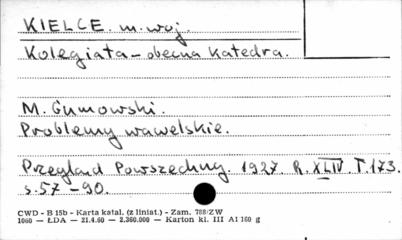 KIELCE. m. woj.
Kolegiata – obecna katedra.
M. Gumowski.
Problemy wawelskie.
Przegląd Powszechny. 1927. R. XLIV T. 173.
s. 57 – 90.
CWD - B 15b - Karta katal. (z liniat.) - Zam. 788/ZW
1060 — ŁDA — 21.4.60 — 2.360.000 — Karton kl. III A1 160 g